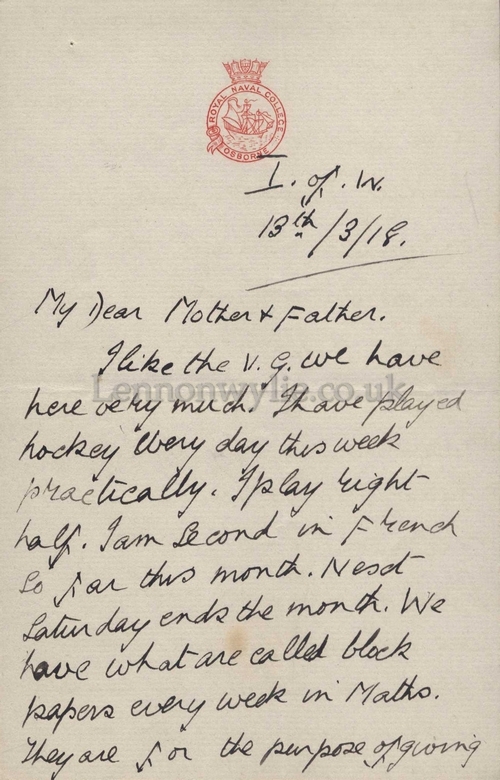 ROYAL NAVAL COLLEGE
OSBORNE
I. of. W.
13th/3/18.
My Dear Mother & Father.
I like the V. G. we have
here very much. I have played
hockey every day this week
practically. I play right
half. I am second in French
so far this month. Next
Saturday ends the month. We
have what are called block
papers every week in Maths.
They are for the purpose of giving
Lennonwylie.co.uk